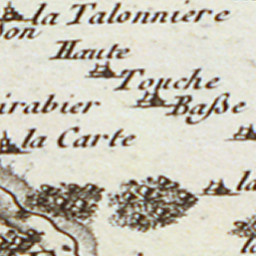 la Talonniere
Haute
Touche
Baſse
la Carte
la